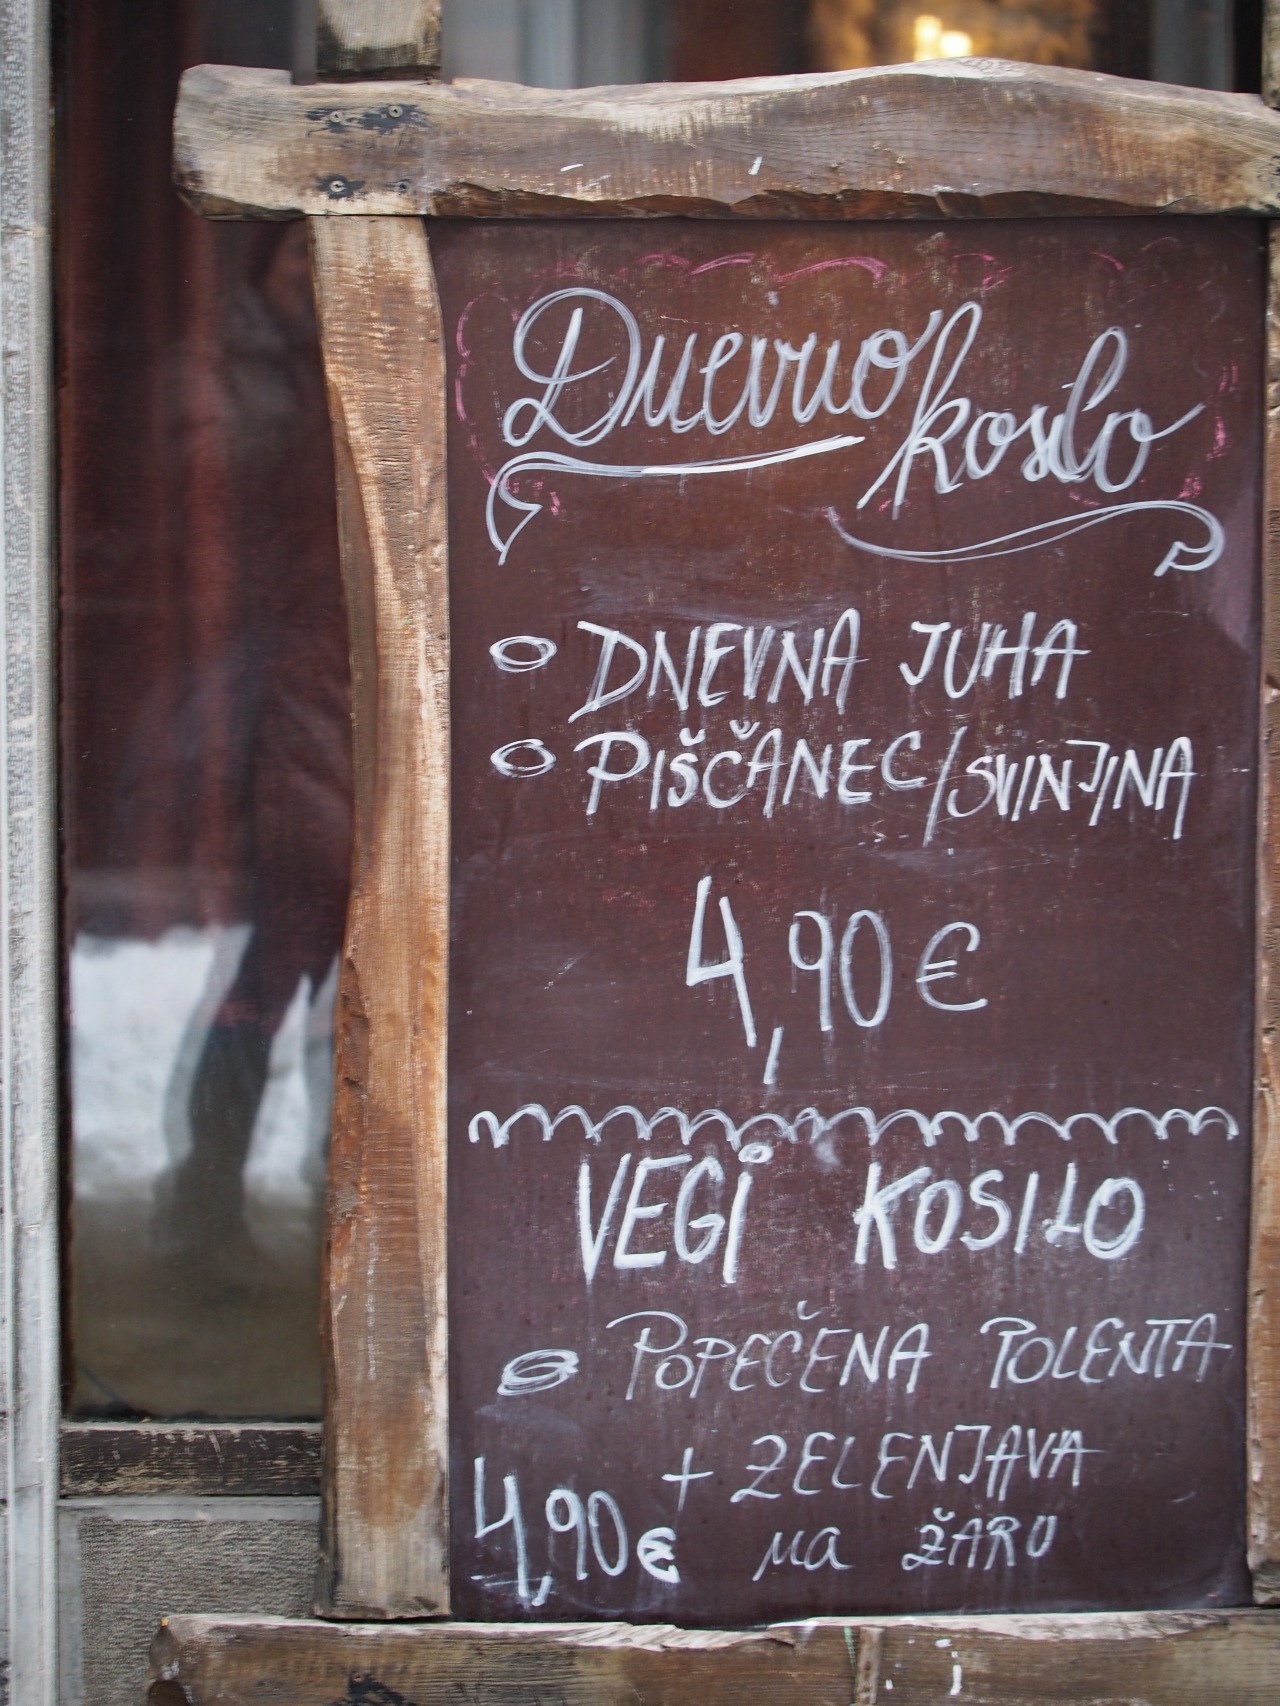 Dnevno
kosilo
DNEVNA JUHA
PIŠČANEC/SVINJINA
4,90 €
VEGi KOSILO
POPEČENA POLENTA
+ ZELENJAVA
4,90 € na ŽARU